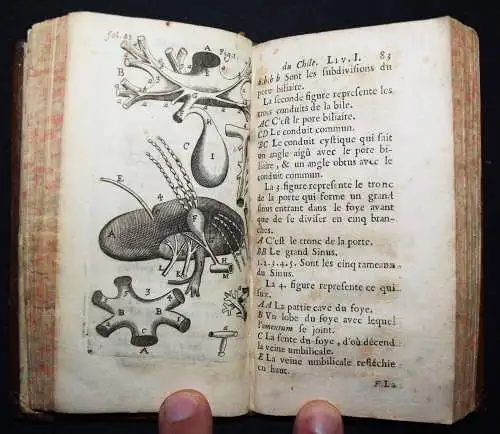 fol. 83
Fig. 1
du Chile. LIV. I. 83
b.b.b.b Sont les subdivisions du
pore biliaire.
La seconde figure represente les
trois conduits de la bile.
AC C'est le pore biliaire.
CD Le conduit commun.
BC Le conduit cystique qui fait
un angle aigû avec le pore bi-
liaire, & un angle obtus avec le
conduit commun.
La 3. figure represente le tronc
de la porte qui forme un grand
sinus entrant dans le foye avant
que de se diviser en cinq bran-
ches.
A C'est le tronc de la porte.
BB Le grand Sinus.
1.2.3.4.5. Sont les cinq rameaux
du Sinus.
La 4. figure represente ce qui
suit.
AA La partie cave du foye.
B Un lobe du foye avec lequel
l'omentum se joint.
C La fente du foye, d'où décend
la veine umbilicale.
E La veine umbilicale reflêchie
en haut.
F La